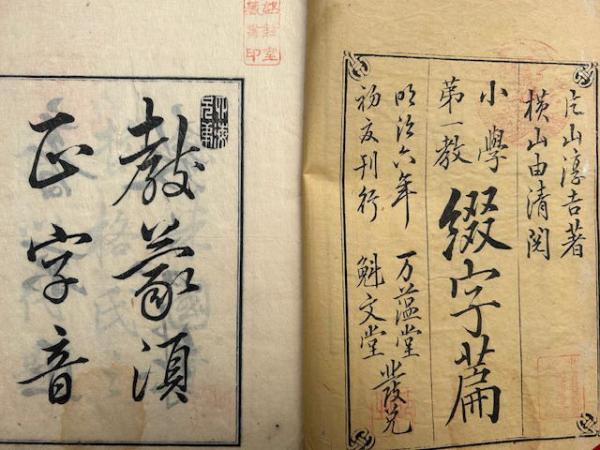 片山淳吉著
横山由清閲
小學
第一教
綴字篇
明治六年
初夏刊行
万蘊堂
魁文堂
教蒙須
正字音